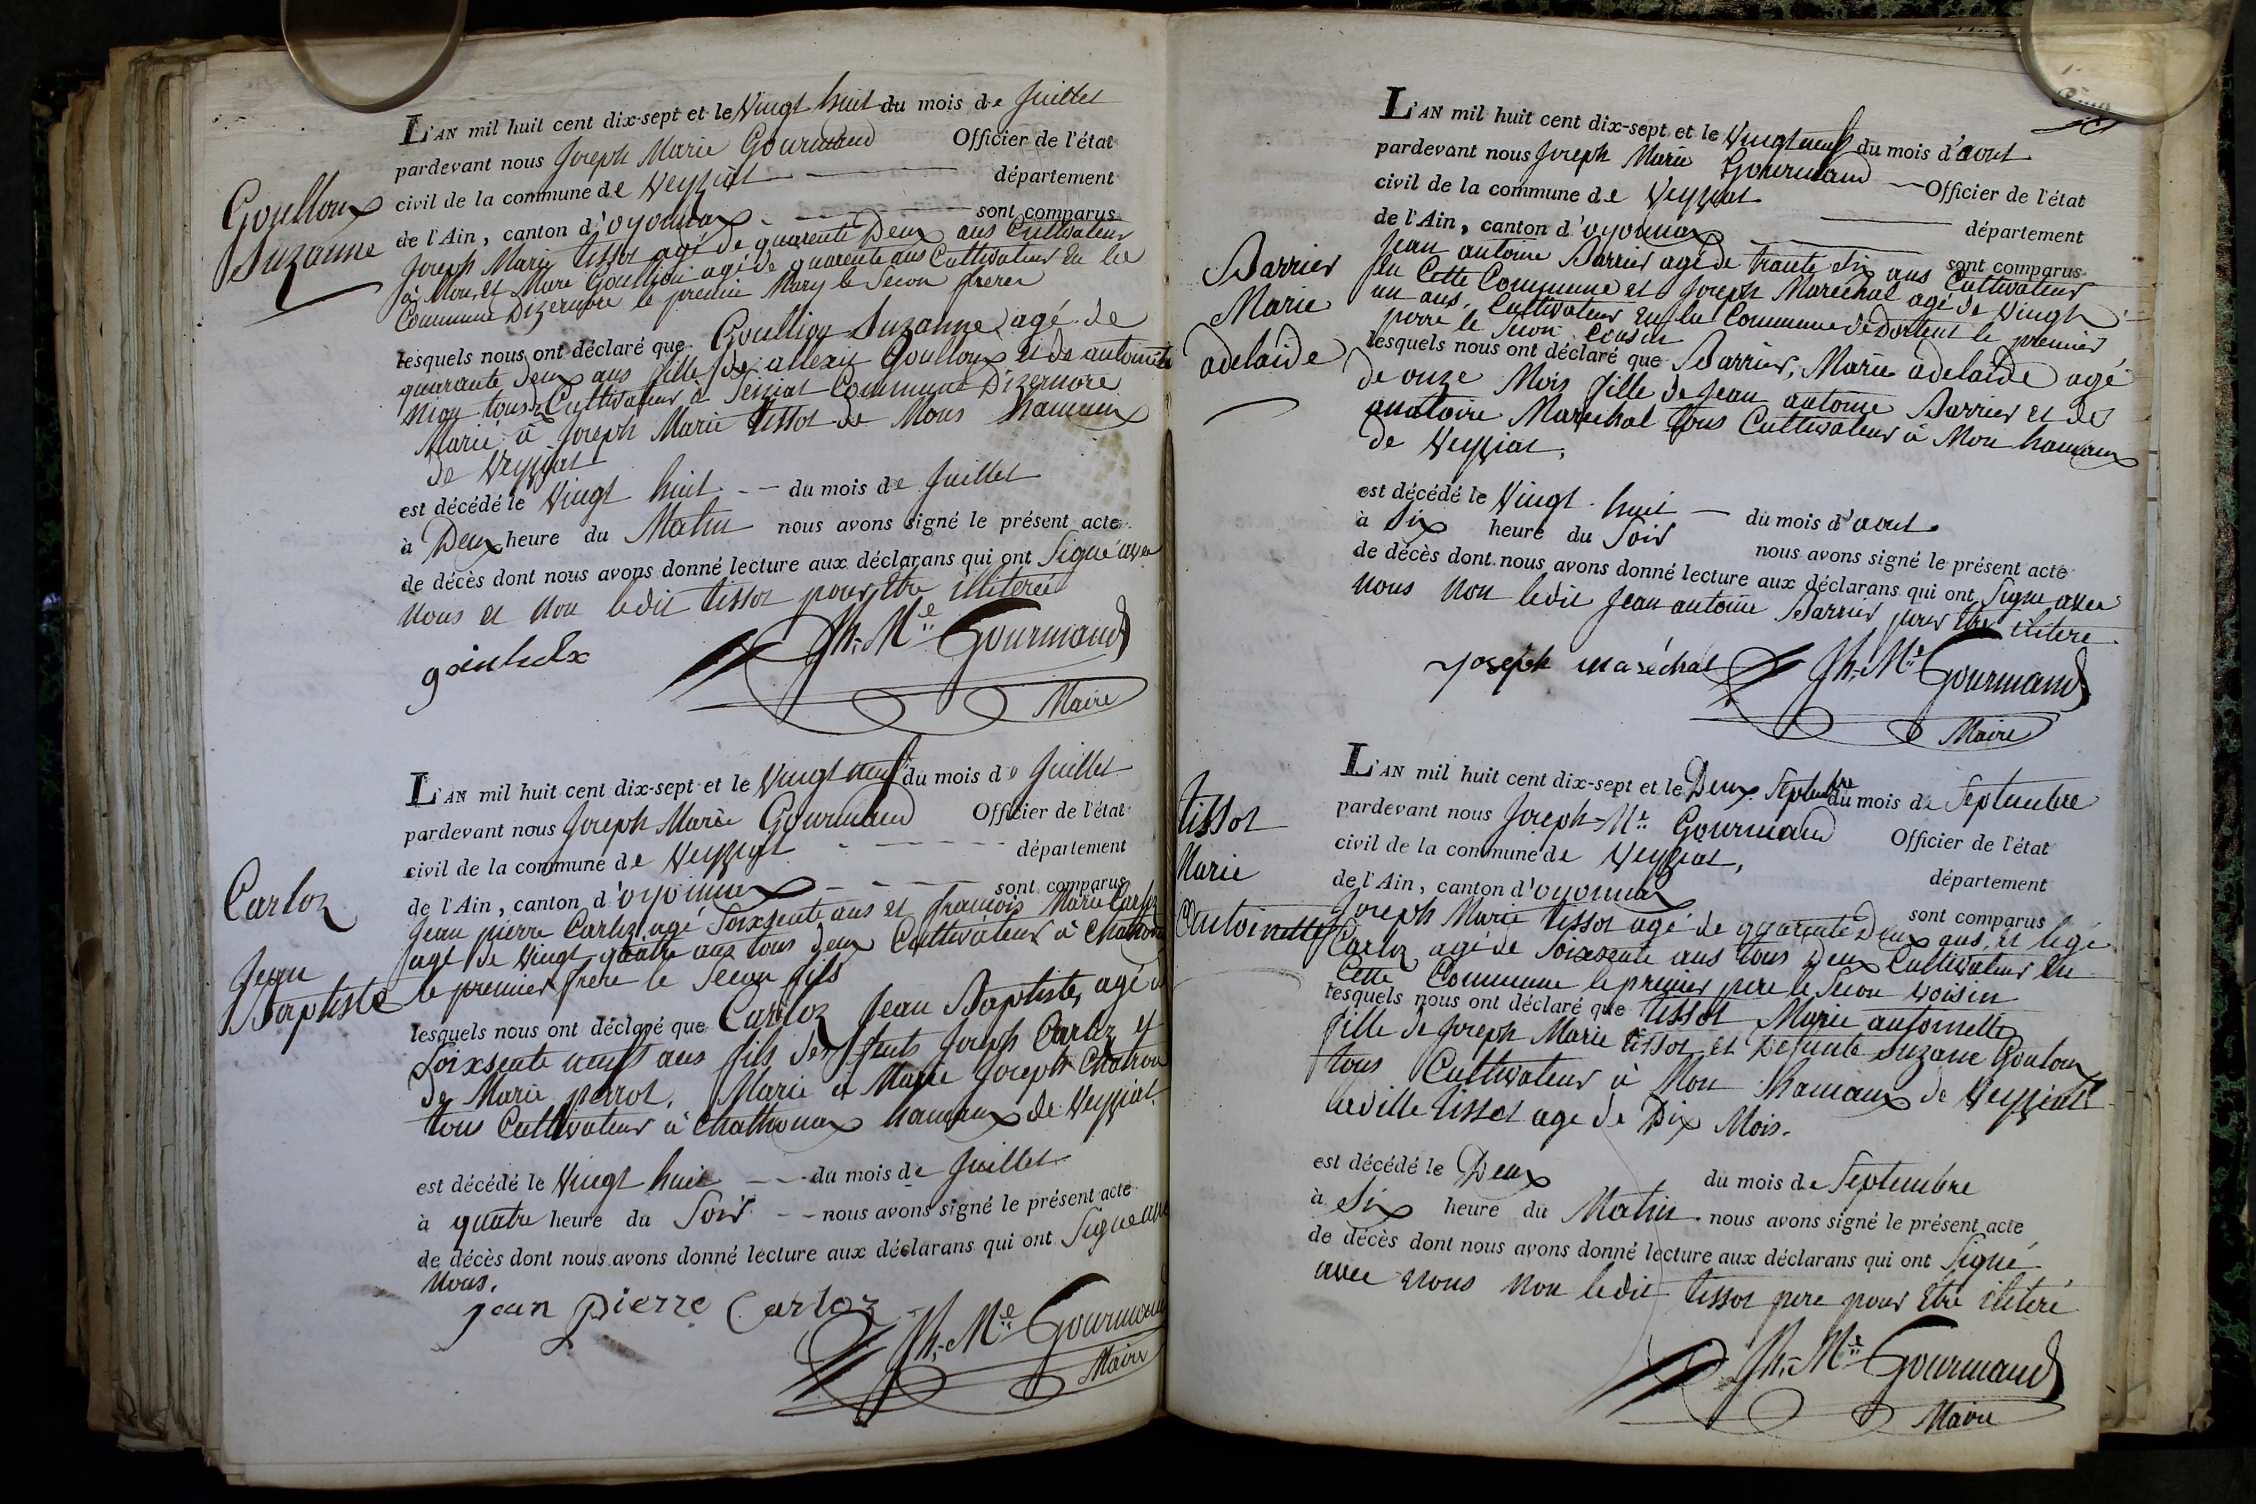 L'AN mil huit cent dix-sept et le Vingt huit du mois de Juillet
pardevant nous Joseph Marie Gourmand Officier de l'état
civil de la commune de Veyziat département
de l'Ain, canton d'oyonnax sont comparus
Goulloux
Suzanne
Joseph Marie tissot agé de quarente Deux ans Cultivateur
à Mon, et Marc Goullion agé de quarente ans Cultivateur En la
Commune Dizernore le premier Mary le Secon frere
lesquels nous ont déclaré que Goullion Suzanne agé de
quarante deux ans fille de allexy Goulloux et de antoinette
tous Cultivateur à Commune Dizernore
Marié à Joseph Marie tissot de Mons hamaux
de Veyziat
est décédé le Vingt huit du mois de Juillet
à Deux heure du Matin nous avons signé le présent acte
de décès dont nous avons donné lecture aux déclarans qui ont Signé avec
nous et non ledit tissot pour être illiteré
Jh. Mie Gourmand
Maire
L'AN mil huit cent dix-sept et le Vingt neuf du mois de Juillet
pardevant nous Joseph Marie Gourmand Officier de l'état
civil de la commune de Veyziat département
de l'Ain, canton d'oyonnax sont comparus
Carloz
Jean
Baptiste
Jean pierre Carloz agé Soixsente ans et francois Marie Carloz
agé de Vingt quatre ans tous deux Cultivateur à Chatonnax
le premier frere le Secon fils
lesquels nous ont déclaré que Carloz Jean Baptiste, agé de
Soixsente neuf ans fils des Joseph Carloz et
de Marie perrot, Marié a Marie Joseph Chatron
tous Cultivateur à Chathonnax hamaux de Veyziat
est décédé le Vingt huit du mois de Juillet
à quatre heure du Soir nous avons signé le présent acte
de décès dont nous avons donné lecture aux déclarans qui ont Signé avec
nous.
jean pierre Carloz
Jh. Mie Gourmand
Maire
L'AN mil huit cent dix-sept et le Vingt neuf du mois d'aout
pardevant nous Joseph Marie Gourmand Officier de l'état
civil de la commune de Veyziat département
de l'Ain, canton d'oyonnax sont comparus
Barrier
Marie
adelaide
Jean antoine Barrier agé de trante Six ans Cultivateur
En Cette Commune et Joseph Maréchal agé de Vingt
un ans, Cultivateur En la Commune de Dortent le premier
perre le Secon Cousin
lesquels nous ont déclaré que Barrier, Marie adelaïde agé
de onze Mois fille de Jean antoine Barrier et de
Maréchal tous Cultivateur à Mon hamaux
de Veyziat,
est décédé le Vingt huit du mois d'aout
à Six heure du Soir nous avons signé le présent acte
de décès dont nous avons donné lecture aux déclarans qui ont Signé avec
nous Non ledit Jean antoine Barrier pour être ilitéré
joseph maréchal
Jh. Mie Gourmand
Maire
L'AN mil huit cent dix-sept et le Deux Septembre du mois de Septembre
pardevant nous Joseph-Mie Gourmand Officier de l'état
civil de la commune de Veyziat, département
de l'Ain, canton d'oyonnax sont comparus
tissot
Marie
antoinette
Joseph Marie tissot agé de quarente Deux ans, et
Carloz agé de Soixsente ans tous Deux Cultivateur En
Cette Commune le premier pere le Secon voisin
lesquels nous ont déclaré que tissot Marie antoinette
fille de Joseph Marie tissot et Defunte Suzane Gouloux
tous Cultivateur à Mon hamaux de Veyziat
tissot agé de Dix Mois.
est décédé le Deux du mois de Septembre
à Six heure du Matin nous avons signé le présent acte
de décès dont nous avons donné lecture aux déclarans qui ont Signé
avec nous Non ledit tissot pere pour être ilitéré
Jh. Mie Gourmand
Maire